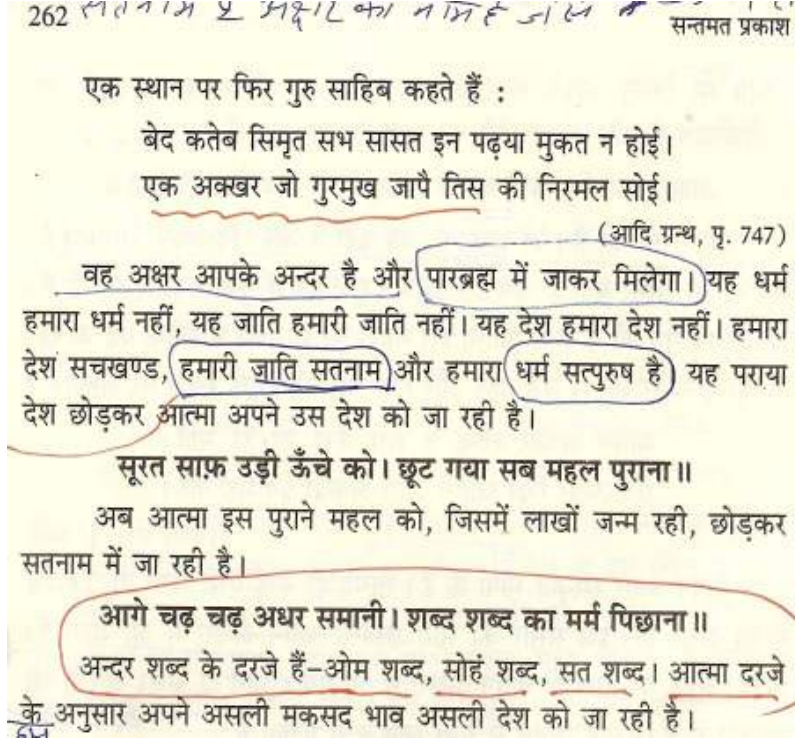 262 सतनाम 2 अक्षर का नाम है
सन्तमत प्रकाश
एक स्थान पर फिर गुरु साहिब कहते हैं :
बेद कतेब सिमृत सभ सासत इन पढ़या मुकत न होई।
एक अक्खर जो गुरमुख जापै तिस की निरमल सोई।
(आदि ग्रन्थ, पृ. 747)
वह अक्षर आपके अन्दर है और पारब्रह्म में जाकर मिलेगा। यह धर्म
हमारा धर्म नहीं, यह जाति हमारी जाति नहीं। यह देश हमारा देश नहीं। हमारा
देश सचखण्ड, हमारी जाति सतनाम और हमारा धर्म सत्पुरुष है) यह पराया
देश छोड़कर आत्मा अपने उस देश को जा रही है।
सूरत साफ़ उड़ी ऊँचे को। छूट गया सब महल पुराना॥
अब आत्मा इस पुराने महल को, जिसमें लाखों जन्म रही, छोड़कर
सतनाम में जा रही है।
आगे चढ़ चढ़ अधर समानी। शब्द शब्द का मर्म पिछाना॥
अन्दर शब्द के दरजे हैं–ओम शब्द, सोहं शब्द, सत शब्द। आत्मा दरजे
के अनुसार अपने असली मकसद भाव असली देश को जा रही है।